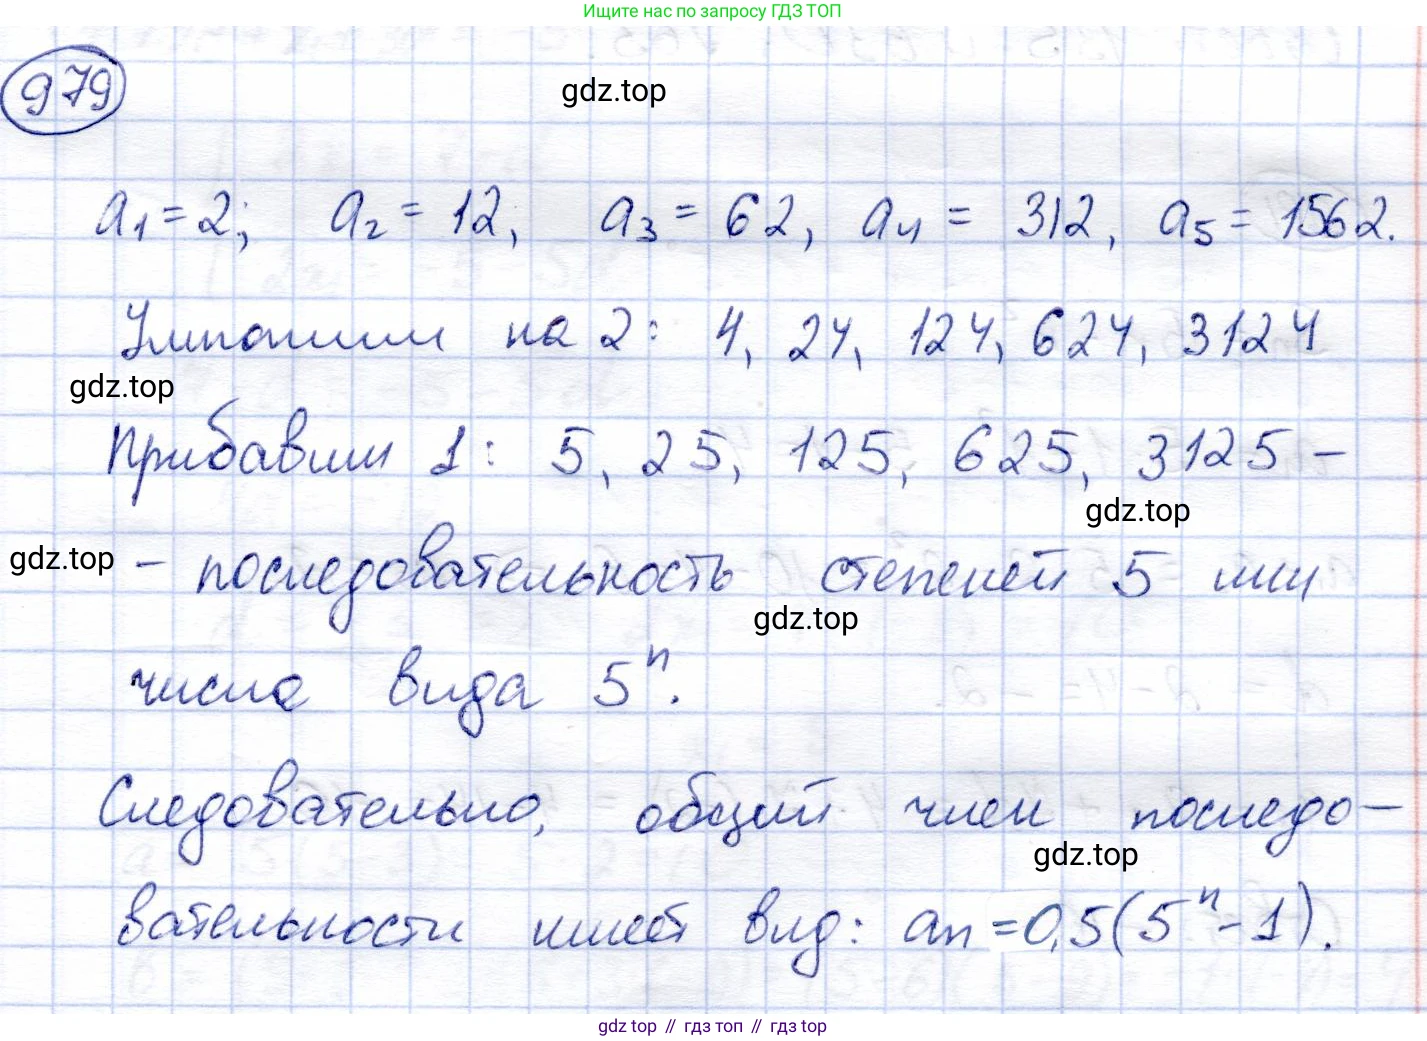 Ищите нас по запросу ГДЗ ТОП
979
gdz.top
a₁ = 2; a₂ = 12, a₃ = 62, a₄ = 312, a₅ = 1562.
Умножим на 2: 4, 24, 124, 624, 3124
gdz.top
Прибавим 1: 5, 25, 125, 625, 3125 –
gdz.top
gdz.top
– последовательность степеней 5 или
gdz.top
числа вида 5ⁿ.
Следовательно, общий член последо–
gdz.top
вательности имеет вид: aₙ = 0,5(5ⁿ - 1).
gdz top // гдз топ // gdz top